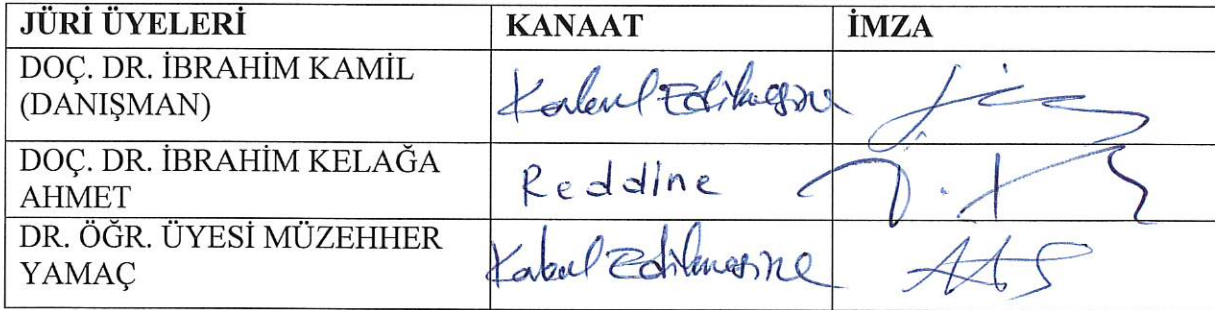 JÜRİ ÜYELERİ KANAAT İMZA
DOÇ. DR. İBRAHİM KAMİL
(DANIŞMAN)
Kabul Edilmesine
DOÇ. DR. İBRAHİM KELAĞA
AHMET
Reddine
DR. ÖĞR. ÜYESİ MÜZEHHER
YAMAÇ
Kabul Edilmesine